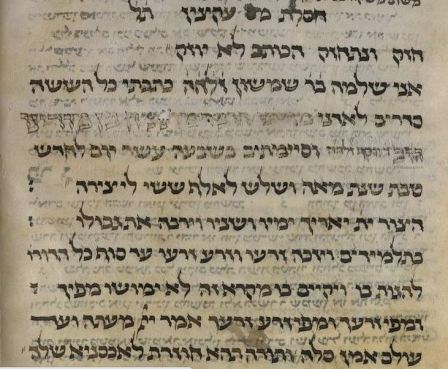 חסלת מס' עקיצין
חזק ונתחזק הכותב לא יוזק
אני שלמה בר שמשון זלהה כתבתי כל הששה
סדרים לאדני
וסיימותים בשבעה עשר יום לחדש
טבת שנת מאה ושלש לאלף ששי ליצירה
היוצר ית' יאריך ימיו ושניו וירבה את גבולו
בתלמידים ויזכה זרעו וזרע זרעו עד סוף כל הדורו'
להגות בו ויקויים בו מקרא זה לא ימושו מפיך
ומפי זרעך ומפי זרע זרעך אמר יי' מעתה ועד
עולם אמן סלה ותורה תהא חוזרת לאכסניא שלה